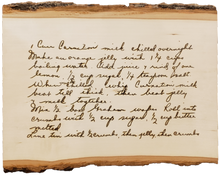 1 Can Carnation milk chilled overnight
Make an orange jelly with 1 3/4 cups
boiling water Add juice & rind of one
lemon, 1/2 cup sugar, 1/4 teaspoon salt
When chilled whip Carnation milk
beat till thick, then beat jelly
& milk together.
Mix 2 doz Graham wafers Roll into
crumbs with 1/2 cup sugar 1/2 cup butter
melted
Line pan with crumbs, then jelly then crumbs